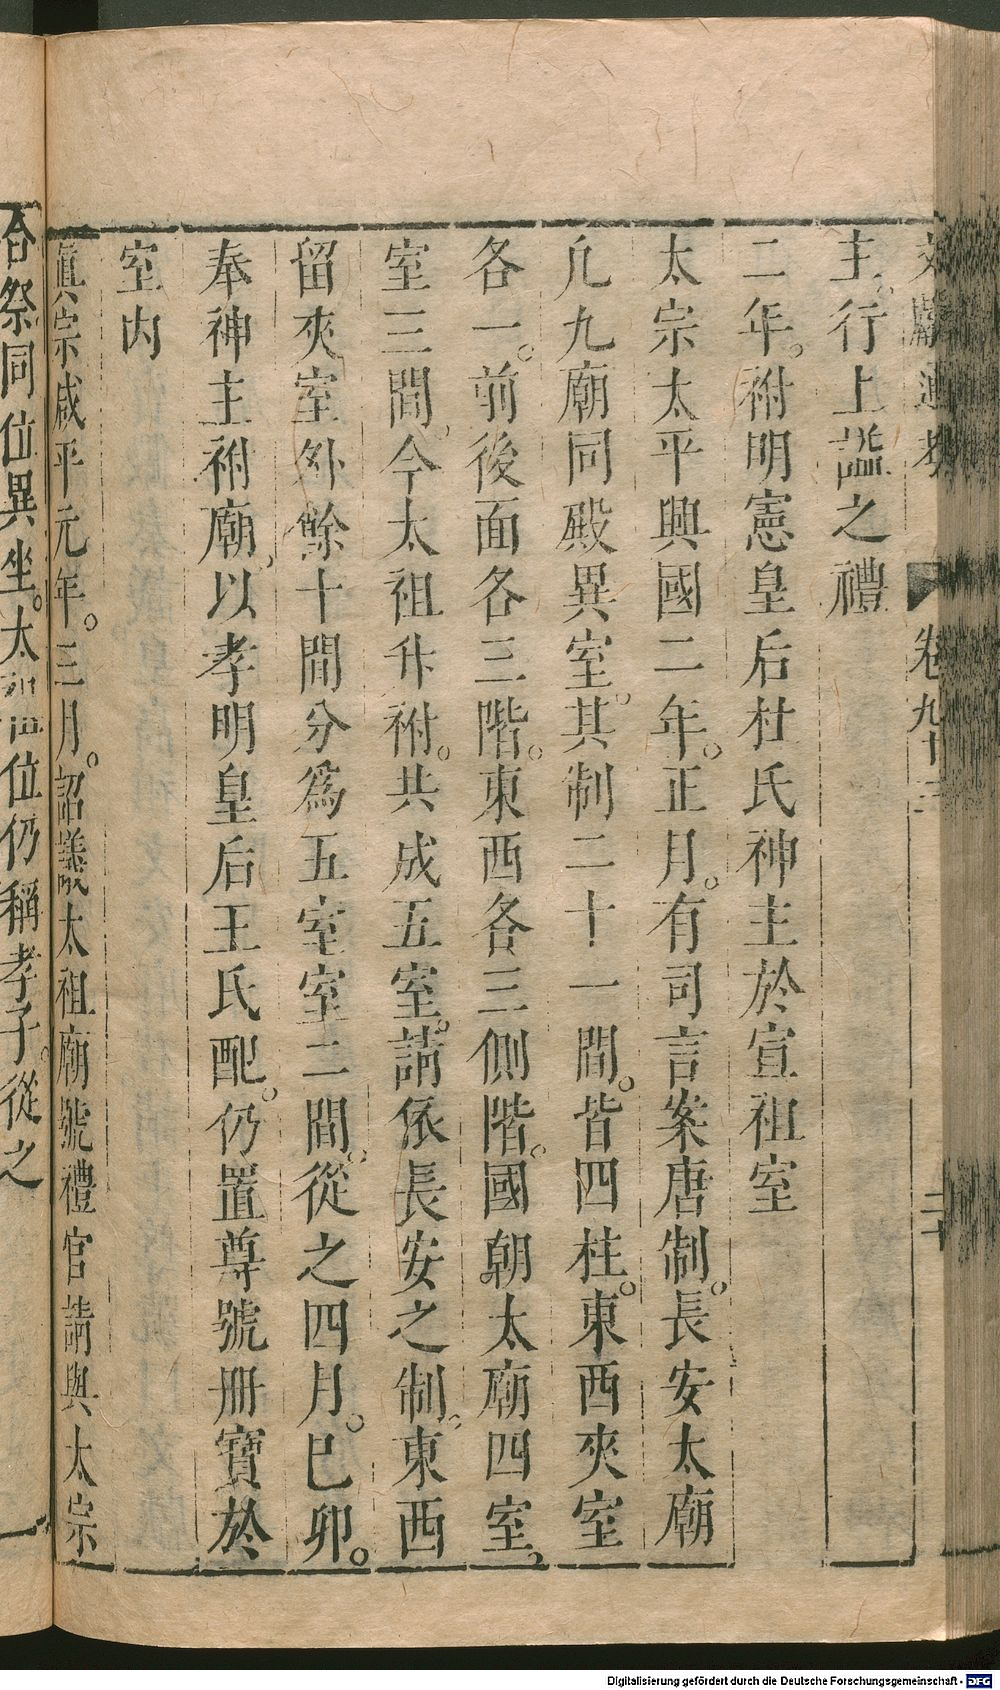 文獻通考 卷九十三 二十
主行上謚之禮
二年。祔明憲皇后杜氏神主於宣祖室
太宗太平興國二年。正月。有司言案唐制。長安太廟
凣九廟同殿異室。其制二十一間。皆四柱。東西夾室
各一。前後面各三階。東西各三側階。國朝太廟四室。
室三間。今太祖升祔。共成五室。請依長安之制。東西
留夾室外餘十間分為五室室二間。從之四月。巳卯。
奉神主祔廟。以孝明皇后王氏配。仍置尊號冊寶於
室内
眞宗咸平元年。三月。詔議太祖廟號禮官請與太宗
合祭同位異坐。太祖位仍稱孝子。從之
Digitalisierung gefördert durch die Deutsche Forschungsgemeinschaft - DFG